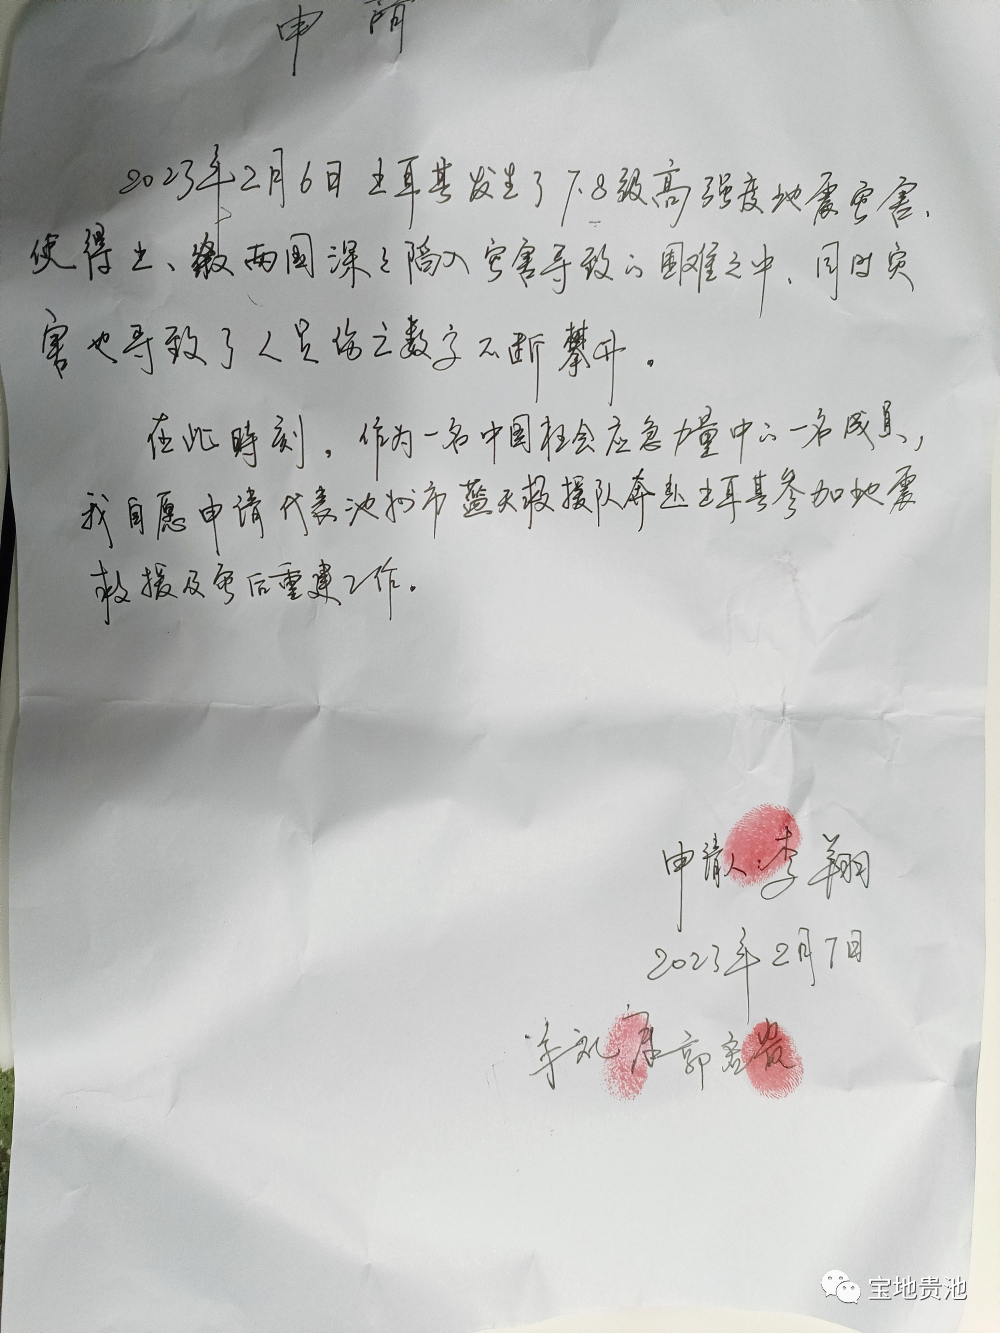 申请
2023年2月6日土耳其发生了7.8级高强度地震灾害、
使得土、叙两国深之陷入灾害导致的困难之中、同时灾
害也导致了人员伤亡数字不断攀升。
在此時刻，作为一名中国社会应急力量中的一名成员，
我自愿申请代表池州市蓝天救援队奔赴土耳其参加地震
救援及灾后重建工作。
申请人：李翔
2023年2月7日
郭
宝地贵池